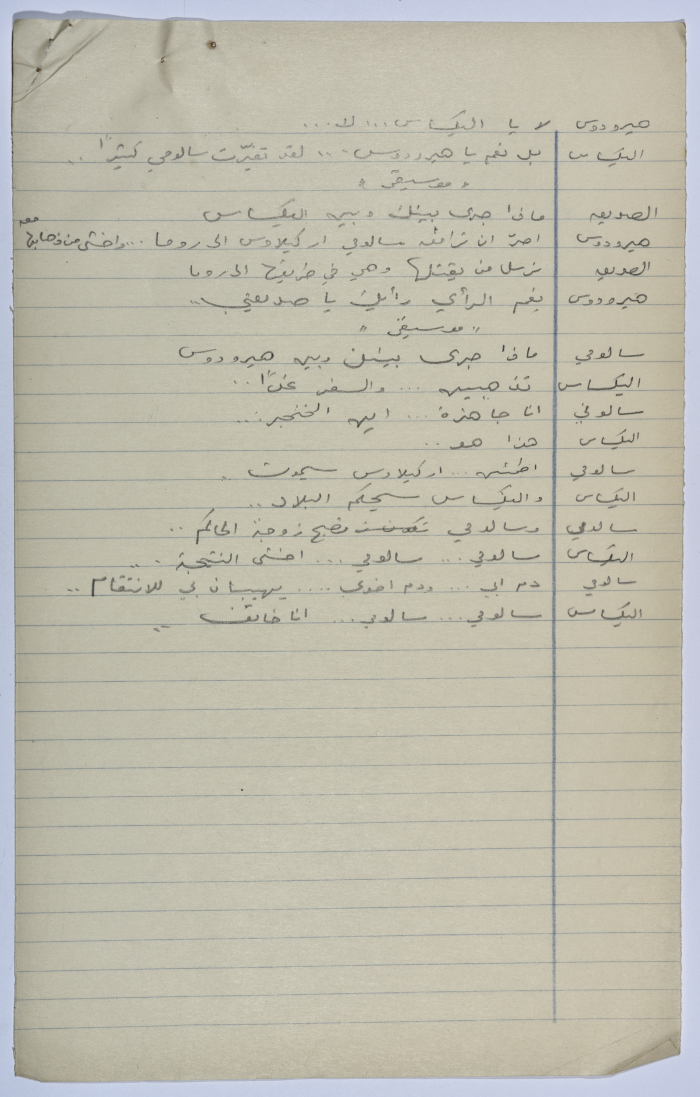 هيرودوس لا يا اليكساس... لا...
اليكساس بل نعم يا هيرودوس... لقد تغيّرت سالومي كثيرًا..
"موسيقى"
الصديق ماذا جرى بينك وبين اليكساس
هيرودوس اصرّ ان ترافقه سالومي اركيلاوس الى روما... واخشى من ذهابها معه
الصديق نرسل من يقتلها وهي في طريقها الى روما
هيرودوس نعم الرأي رأيك يا صديقي..
"موسيقى"
سالومي ماذا جرى بينك وبين هيرودوس
اليكساس تذهبين... والسفر غدًا..
سالومي انا جاهزة... اين الخنجر...
اليكساس هذا هو..
سالومي اطمئن... اركيلاوس سيموت..
اليكساس واليكساس سيحكم البلاد..
سالومي وسالومي تصبح زوجة الحاكم..
اليكساس سالومي... سالومي... اخشى النتيجة...
سالومي دم ابي... ودم اخوي.... يهيبان بي للانتقام..
اليكساس سالومي... سالومي... انا خائف..